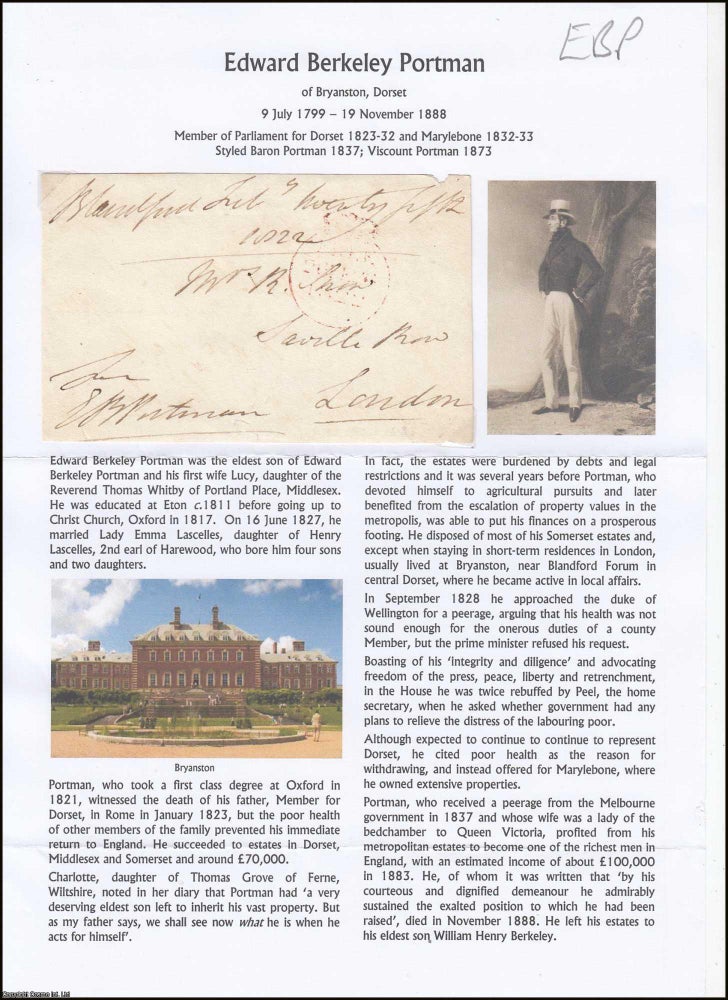 EBP
Edward Berkeley Portman
of Bryanston, Dorset
9 July 1799 – 19 November 1888
Member of Parliament for Dorset 1823-32 and Marylebone 1832-33
Styled Baron Portman 1837; Viscount Portman 1873
Blandford Feby twenty fifth
Saville Row
London
EBPortman
Edward Berkeley Portman was the eldest son of Edward
Berkeley Portman and his first wife Lucy, daughter of the
Reverend Thomas Whitby of Portland Place, Middlesex.
He was educated at Eton c.1811 before going up to
Christ Church, Oxford in 1817. On 16 June 1827, he
married Lady Emma Lascelles, daughter of Henry
Lascelles, 2nd earl of Harewood, who bore him four sons
and two daughters.
Bryanston
Portman, who took a first class degree at Oxford in
1821, witnessed the death of his father, Member for
Dorset, in Rome in January 1823, but the poor health
of other members of the family prevented his immediate
return to England. He succeeded to estates in Dorset,
Middlesex and Somerset and around £70,000.
Charlotte, daughter of Thomas Grove of Ferne,
Wiltshire, noted in her diary that Portman had 'a very
deserving eldest son left to inherit his vast property. But
as my father says, we shall see now what he is when he
acts for himself'.
In fact, the estates were burdened by debts and legal
restrictions and it was several years before Portman, who
devoted himself to agricultural pursuits and later
benefited from the escalation of property values in the
metropolis, was able to put his finances on a prosperous
footing. He disposed of most of his Somerset estates and,
except when staying in short-term residences in London,
usually lived at Bryanston, near Blandford Forum in
central Dorset, where he became active in local affairs.
In September 1828 he approached the duke of
Wellington for a peerage, arguing that his health was not
sound enough for the onerous duties of a county
Member, but the prime minister refused his request.
Boasting of his 'integrity and diligence' and advocating
freedom of the press, peace, liberty and retrenchment,
in the House he was twice rebuffed by Peel, the home
secretary, when he asked whether government had any
plans to relieve the distress of the labouring poor.
Although expected to continue to continue to represent
Dorset, he cited poor health as the reason for
withdrawing, and instead offered for Marylebone, where
he owned extensive properties.
Portman, who received a peerage from the Melbourne
government in 1837 and whose wife was a lady of the
bedchamber to Queen Victoria, profited from his
metropolitan estates to become one of the richest men in
England, with an estimated income of about £100,000
in 1883. He, of whom it was written that 'by his
courteous and dignified demeanour he admirably
sustained the exalted position to which he had been
raised', died in November 1888. He left his estates to
his eldest son, William Henry Berkeley.